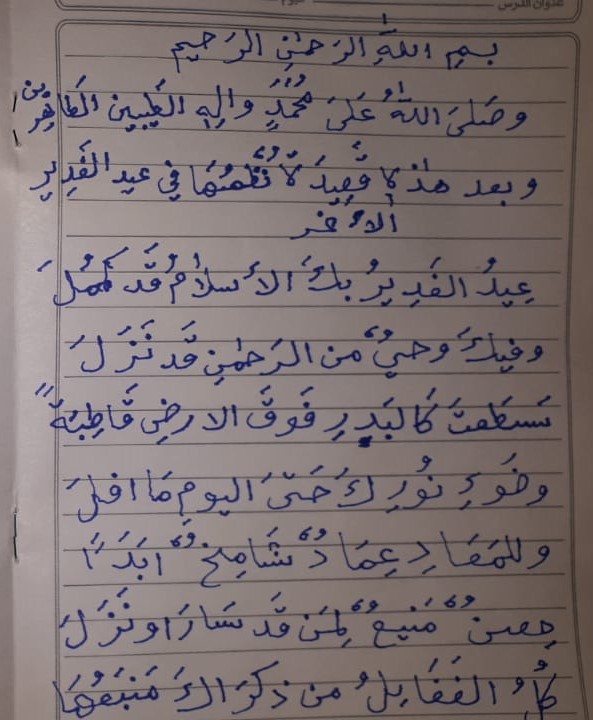 عنوان الدرس
بسمِ اللهِ الرَحمٰنِ الرَحيم
وصَلىَ اللهُ عَلىَ مُحَمَدٍ والِهِ الطَيِبين الطَاهِرين
وبعد هٰذهِ قصِيدَةٌ نُظمتُهَا في عيد الغَدِير
الأغر
عِيدُ الغَدِيرِ بكَ الأسلامُ قَد كَمُلَ
وفيكَ وحيٌ من الرَحمٰنِ قَد نَزَلَ
سَطَعتَ كَالبَدرِ فَوقَ الارضِ قَاطِبَةً
وضَوءِ نُورِكَ حَتىَ اليومِ مَا افلَ
وللمَعَادِ عِمَادٌ شَامِخٌ ابَدًَا
حِصنٌ مَنيعٌ لِمَن قَد سَارَ او نَزَلَ
كلُ الفَضَايِلُ من ذكرَاكَ مَنبَعُهَا